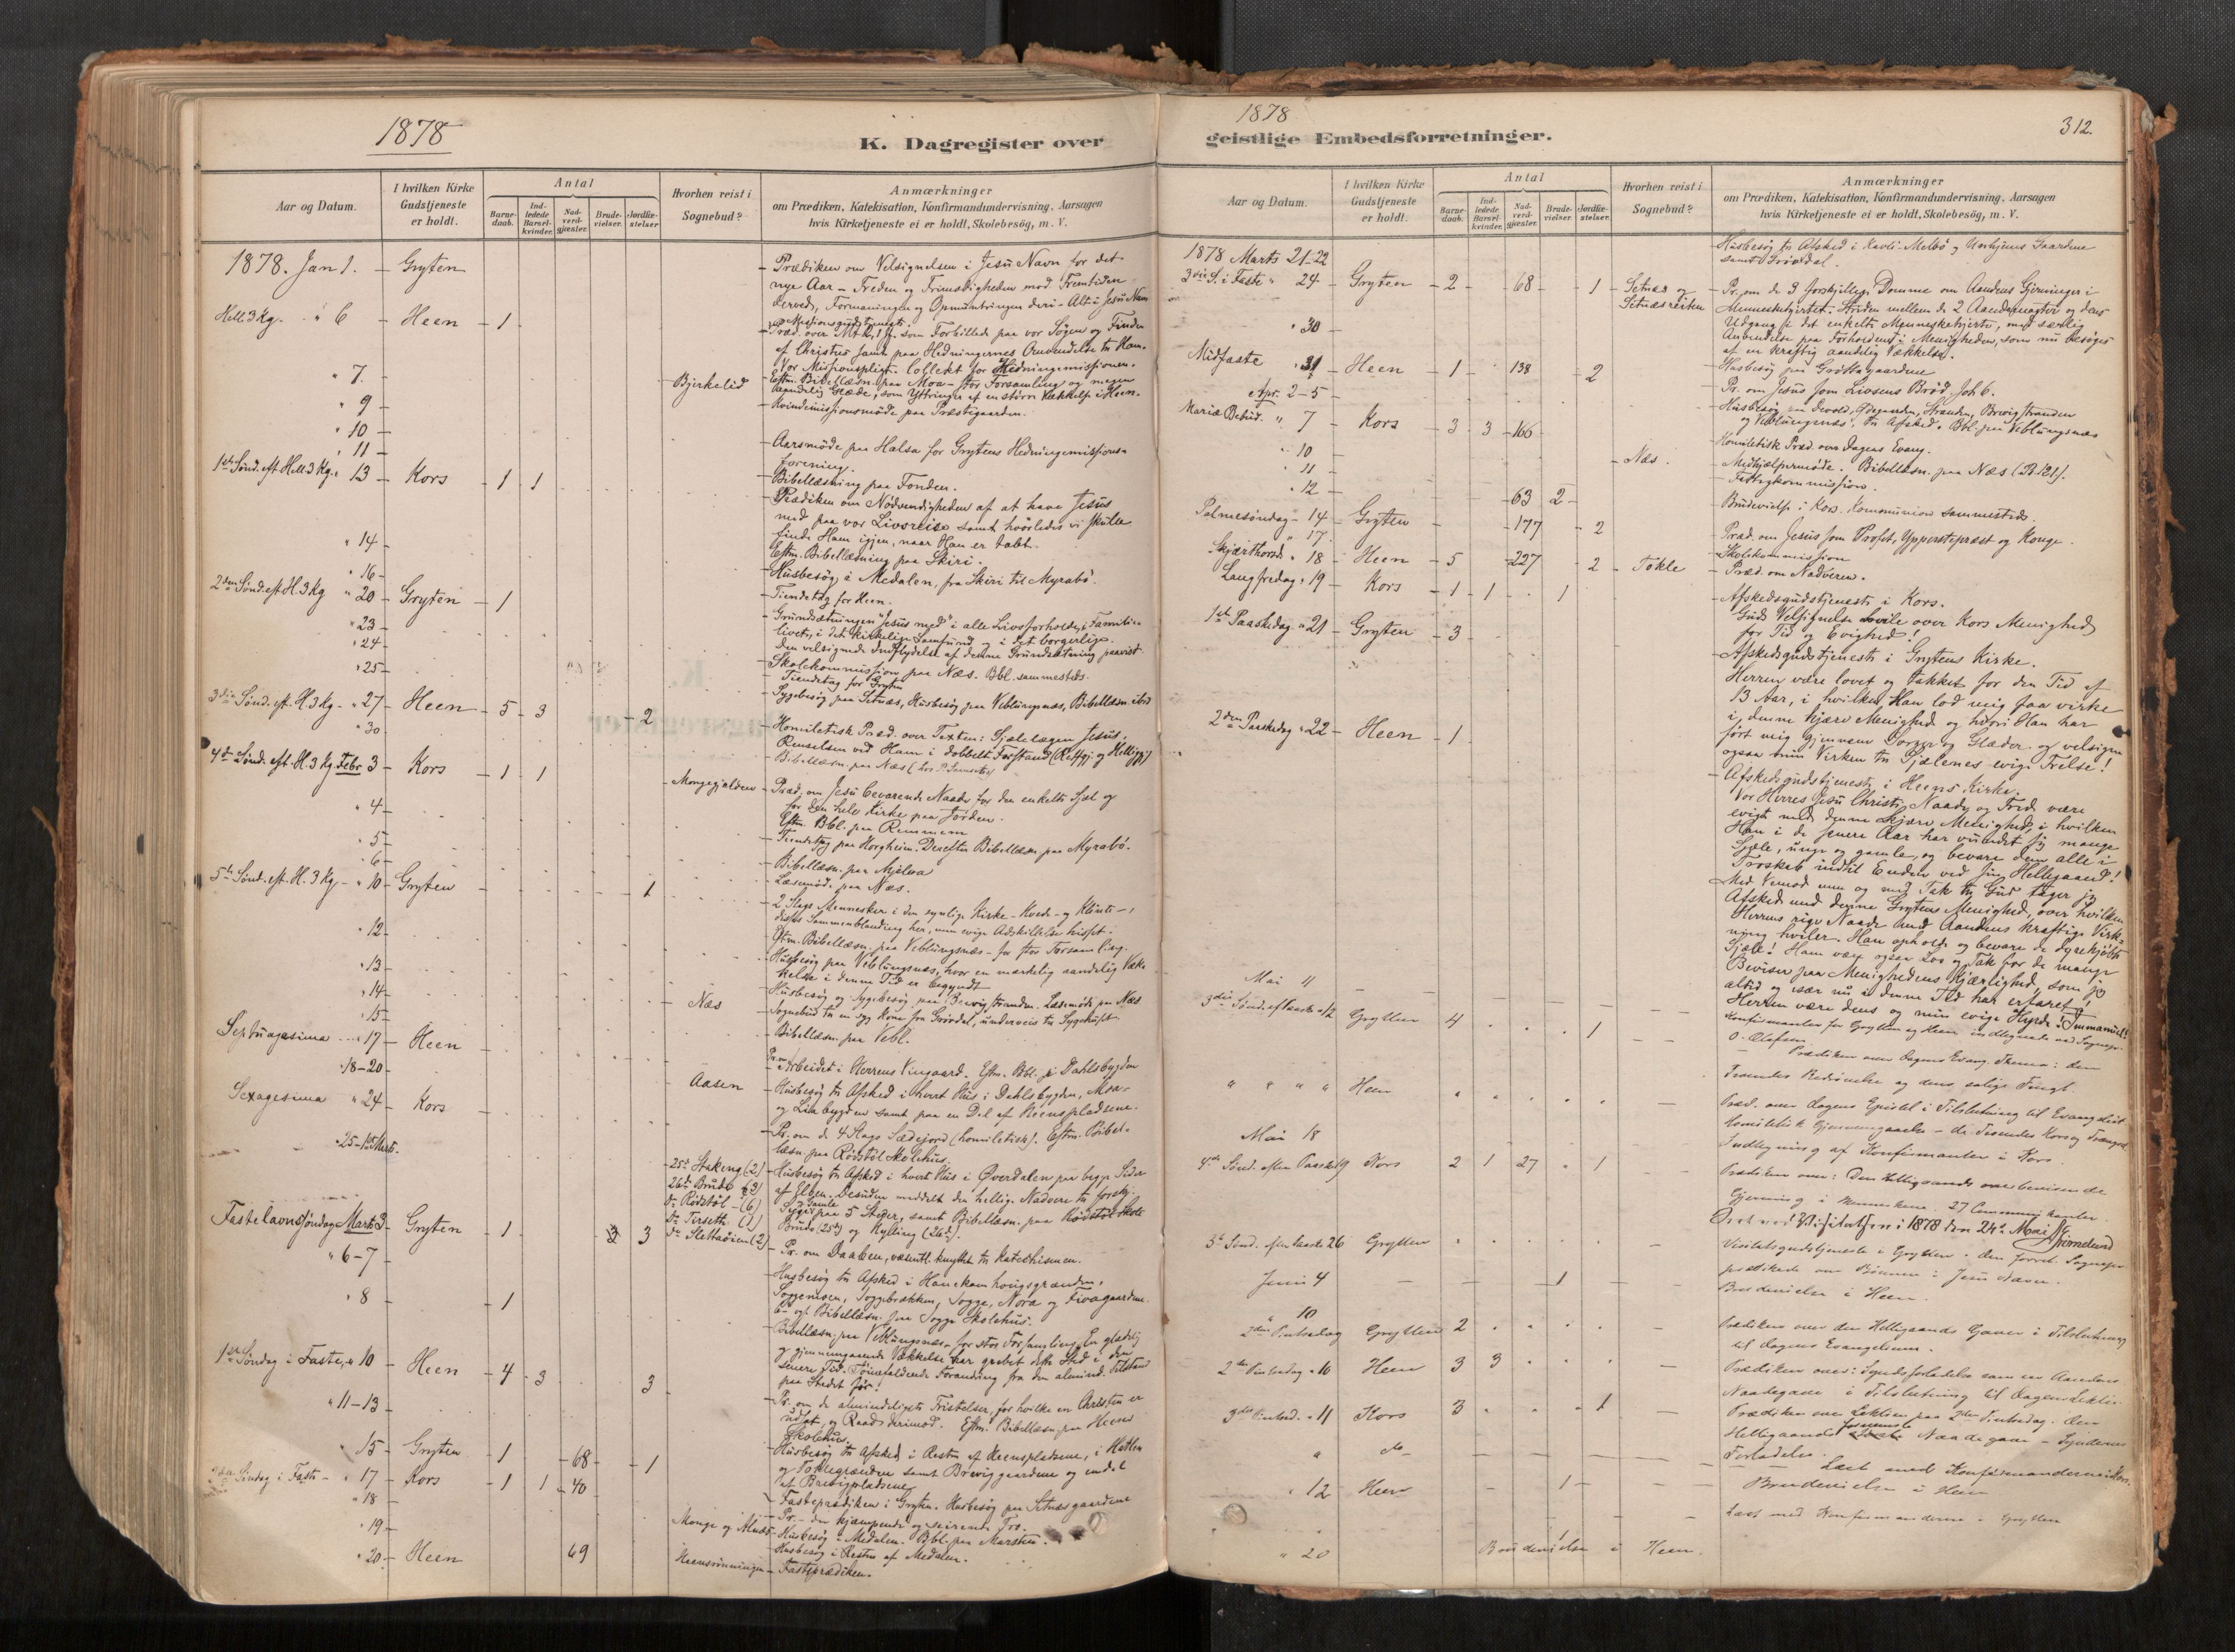 1878
K. Dagregister over
Aar og Datum.
I hvilken Kirke Gudstjeneste er holdt.
Antal
Barnedaab.
Indledede Barselkvinder.
Nadverdgjester.
Brudevielser.
Jordfæstelser
Hvorhen reist i Sognebud?
Anmærkninger
om Prædiken, Katekisation, Konfirmandundervisning, Aarsagen
hvis Kirketjeneste ei er holdt, Skolebesög, m. V.
1878. Jan 1. Gryten
Prædiken om Velsignelsen i Jesu Navn for det
nye Aar - Freden og Frimodigheden mod Fremtiden
derved, Formaningen og Opmuntringen deri - Alt i Jesu Navn
Hell. 3 Kg. " 6 Heen 1
af Christus samt paa Hedningernes Omvendelse til Ham.
Vor Missionspligt. Collekt for Hedningemissionen.
" 7 Bjerkelid
Eftm. Bibellæsn. paa Moa - stor Forsamling og megen
aandelig Glæde, som Yttringer af en större Vækkelse i Heen.
" 9
Kvindemissionsmöde paa Præstegaarden.
" 10
Aarsmöde paa Halsa for Grytens Hedningemissionsforening.
" 11
Bibellæsning paa Fonden.
1ste Sönd. eft. Hell. 3 Kg. " 13 Kors 1 1
Prædiken om Nödvendigheden af at have Jesus
med paa vor Livsreise samt hvorledes vi skulle
finde Ham igjen, naar Han er tabt.
Eftm. Bibellæsning paa Skiri.
" 14
Husbesög i Medalen, fra Skiri til Myrabö.
" 16
Tiendetag for Heen.
2den Sönd. eft. H. 3 Kg " 20 Gryten 1
Grundsætningen "Jesus med" i alle Livsforholde, i Familielivet,
i det kirkelige Samfund og i det borgerlige.
Den velsignede Indflydelse af denne Grundsætning paavist
" 23
Skolekommission paa Næs. Bbl. sammesteds.
" 24
Tiendetag for Gryten
" 25
Sygebesög paa Setnæs, Husbesög paa Veblungsnæs, Bibellæsn ibid
3die Sönd. eft. H. 3 Kg - " 27 Heen 5 3 2
Homiletisk Præd. over Texten: Sjælelægen Jesus.
" 30
Bibellæsn. paa Næs
4de Sönd. eft. H. 3 Kg. Febr 3 Kors 1 1 Mongegjalderen
Præd. om Jesu bevarende Naade for den enkelte Sjæl og
for den hele Kirke paa Jorden.
Eftm. Bbl. paa Remmem
" 4
Tiendetag paa Horgheim. Derefter Bibellæsn. paa Myrabö.
" 5
Bibellæsn. paa Mjelva
" 6
Læsemöde paa Næs.
5te Sönd. eft. H. 3 Kg - " 10 Gryten 1
2 Slags Mennesker i den synlige Kirke - Hvede- og Klinte-,
deres Sammenblanding her, men evige Adskillelse hisset.
Eftm. Bibellæsn. paa Veblungsnæs - for stor Forsamling.
" 12
Husbesög paa Veblungsnæs, hvor en mærkelig aandelig Vækkelse
i denne Tid er begyndt
" 13
Husbesög og Sygebesög paa Brevigstranden. Læsemöde paa Næs
" 14 Næs
Sognebud til en syg Kone fra Grövdal, underveis til Sygehuset.
" 15
Bibellæsn. paa Vebl.
Septuagesima " 17 Heen
Pr. om Arbeidet i Herrens Viingaard. Eftm. Bbl. i Dahlsbygden
" 18-20 Aasen
Husbesög til Afsked i hvert Hus i Dahlsbygden, Moa-
og Liabygden samt paa en Del af Heenspladsene.
Sexagesima " 24 Kors
Pr. om de 4 Slags Sædejord (homiletisk). Eftm. Bibellæsn.
paa Rödstöl Skolehus.
" 25-1ste Marts.
25de Stakeng (2)
26de Brude (3)
do Rödstöl - (6)
do Tirseth (1)
do Slettaöien (2)
Husbesög til Afsked i hvert Hus i Øverdalen paa begge Sider
af Elven. Desuden meddelt den hellige Nadvere til forskj.
Syge & Gamle paa 5 Steder, samt Bibellæsn. paa Rödstöl Skole
Brude (25de) og Kylling (26de).
Fastelavnssöndag Marts 3 Gryten 1 3
Pr. om Daaben, væsentl. knyttet til Katechismen.
" 6-7
Husbesög til Afsked i Hanekamhougsgrænden,
Soggemoen, Soggebakken, Sogge, Nora og Fivagaardene.
6te og 7. Bibellæsn. paa Sogge Skolehus.
" 8 1
Bibellæsn. paa Veblungsnæs - for stor Forsamling. En glædelig
og gjennemgaaende Vækkelse har grebet dette Sted i den
senere Tid. Iöinefaldende Forandring fra den almind. Tilstand
paa Stedet för.
1ste Söndag i Faste, " 10 Heen 4 3 3
Pr. om de almindeligste Fristelser, for hvilke en Christen er
udsat, og Raads derimod. Eftm. Bibellæsn. paa Heens
Skolehus.
" 11-13
Husbesög til Afsked i Resten af Heenspladsene, i Hatlen
og Toklegrænden samt Breviggaardene og endel
af Brevigpladsene
" 15 Gryten 1 68 1
Fasteprædiken i Gryten. Husbesög paa Setnæsgaardene
2den Söndag i Faste - " 17 Kors 1 1 40
Pr. - den kjæmpende og seirende Tro.
" 18
" 19 Monge og Alnæs
Husbesög i Medalen. Bbl. paa Marstein.
Husbesög i Resten af Medalen.
" 20 Heen 69
Fasteprædiken.
1878
geistlige Embedsforretninger.
312.
Aar og Datum.
I hvilken Kirke Gudstjeneste er holdt.
Antal
Barnedaab.
Indledede Barselkvinder.
Nadverdgjester.
Brudevielser.
Jordfæstelser.
Hvorhen reist i Sognebud?
Anmærkninger
om Prædiken, Katekisation, Konfirmandundervisning, Aarsagen
hvis Kirketjeneste ei er holdt, Skolebesög, m. V.
1878 Marts 21-22
Husbesög til Afsked i Kavli Melbö og Unhjems Gaardene
samt Grövdal.
3die S. i Faste " 24 Gryten 2 68 1 Setnæs og Setnæsreiten
Pr. om de 3 forskjellige Domme om Aandens Gjerninger i
Menneskehjertet. Striden mellem de 2 Aandsmagter og dens
Udgang i det enkelte Menneskehjerte, med særlig
Anvendelse paa Forholdene i Menigheden, som nu besöges
af en kraftig aandelig Vækkelse.
" 30
Husbesög paa Gröttagaardene
Midfaste " 31 Heen 1 138 2
Pr. om Jesus som Livsens Bröd Joh 6.
Apr. 2-5
Husbesög paa Devold, Ødegaarden, Stranden, Brevigstranden
og Veblungsnæs, til Afsked. Bbl. paa Veblungsnæs
Mariæ Bebud. " 7 Kors 3 3 166
Homiletisk Præd. over Dagens Evang.
" 10 Næs.
Medhjælpermöde. Bibellæsn. paa Næs
" 11
Fattigkommission.
" 12 63 2
Brudevielse i Kors. Kommunion sammesteds.
Palmesöndag - 14 Gryten 177 2
Præd. om Jesus som Profet, Ypperstepræst og Konge.
" 17
Skolekommission
Skjærthorsd. " 18 Heen 5 227 2 Tokle
Præd. om Nadveren.
Langfredag " 19 Kors 1 1 1
Afskedsgudstjeneste i Kors.
Guds Velsignelse hvile over Kors Menighed
for Tid og Evighed!
1ste Paaskedag. " 21 Gryten 3
Afskedsgudstjeneste i Grytens Kirke.
Herren være lovet og takket for den Tid af
13 Aar, i hvilken Han lod mig faa virke
i denne kjære Menighed og hvori Han har
fört mig gjennem Sorger og Glæder og velsigne
ogsaa min Virken til Sjælenes evige Frelse!
2den Paaskedag " 22 Heen 1
Afskedsgudstjeneste i Heens Kirke.
Vor Herres Jesu Christi Naade og Fred være
evigt med denne kjære Menighed, i hvilken
Han i de senere Aar har udvalgt sig mange
Sjæle, unge og gamle, og bevare dem alle i
Troskab indtil Enden ved sin Helligaand!
Med Vemod men og med Tak til Gud tager jeg
Afsked med denne Grytens Menighed, over hvilken
Herrens rige Naade med Aandens kraftige Virkning
hviler. Han opholde og bevare de dyrekjöbte
Sjæle! Ham være ogsaa Lov og Tak for de mange
Beviser paa Menighedens Kjærlighed, som jeg
altid og især nu i denne Tid har erfaret.
Herren være dens og min evige Hyrde! Immanuel!
Mai 11
Konfirmanter for Grytten og Heen indtegnede ved Sognepr.
O. Olafsen
3die Sönd. eft Paaske " 12 Grytten 4 1
Prædiken over Dagens Evang. Thema: den
Troendes Bedrövelse og dens salige Frugt.
" " " " Heen
Præd. over dagens Epistel i Tilslutning til Evangeliet
Homiletisk Gjennemgaaelse - de Troendes Kors og Trængsel
Mai 18
Indtegning af Konfirmanter i Kors.
4de Sönd. efter Paaske 19 Kors 2 1 27 1
Prædiken over: Den Helligaands overbevisende
Gjerning i Menneskene. 27 Communikanter.
Seet ved Visitatsen i 1878 den 24de Mai
5te Sönd. efter Paaske 26 Grytten
Visitatsgudstjeneste i Grytten. Den forrett. Sognepr.
prædikede om Bönnen i Jesu Navn.
Juni 4 1
Brudevielse i Heen.
10
2den Pintsedag Grytten 2
Prædiken over den Helligaands Gaver i Tilslutning
til dagens Evangelium.
2den Pintsedag " 10 Heen 3 3
Prædiken over: Syndsforladelse som en Aandens
Naadegave i Tilslutning til dagens Lektie
3die Pintsed. " 11 Kors 3 1
Prædiken over Lektien paa 2den Pintsedag. Den
Helligaands fornemste Naadegave - Syndernes
Forladelse.
" do
Læst med Konfirmanderne i Kors.
" 12 Heen 1
Brudevielse i Heen
Læst med Konfirmanderne i Grytten
" 20 Brudevielse i Heen. 1